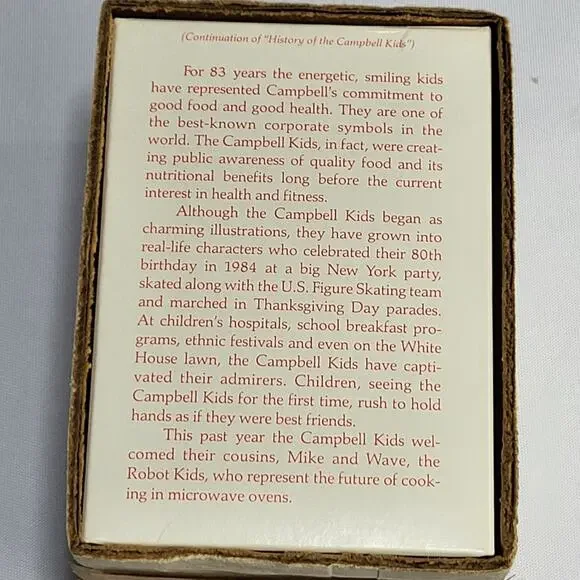 (Continuation of "History of the Campbell Kids")
For 83 years the energetic, smiling kids
have represented Campbell's commitment to
good food and good health. They are one of
the best-known corporate symbols in the
world. The Campbell Kids, in fact, were creat-
ing public awareness of quality food and its
nutritional benefits long before the current
interest in health and fitness.
Although the Campbell Kids began as
charming illustrations, they have grown into
real-life characters who celebrated their 80th
birthday in 1984 at a big New York party,
skated along with the U.S. Figure Skating team
and marched in Thanksgiving Day parades.
At children's hospitals, school breakfast pro-
grams, ethnic festivals and even on the White
House lawn, the Campbell Kids have capti-
vated their admirers. Children, seeing the
Campbell Kids for the first time, rush to hold
hands as if they were best friends.
This past year the Campbell Kids wel-
comed their cousins, Mike and Wave, the
Robot Kids, who represent the future of cook-
ing in microwave ovens.